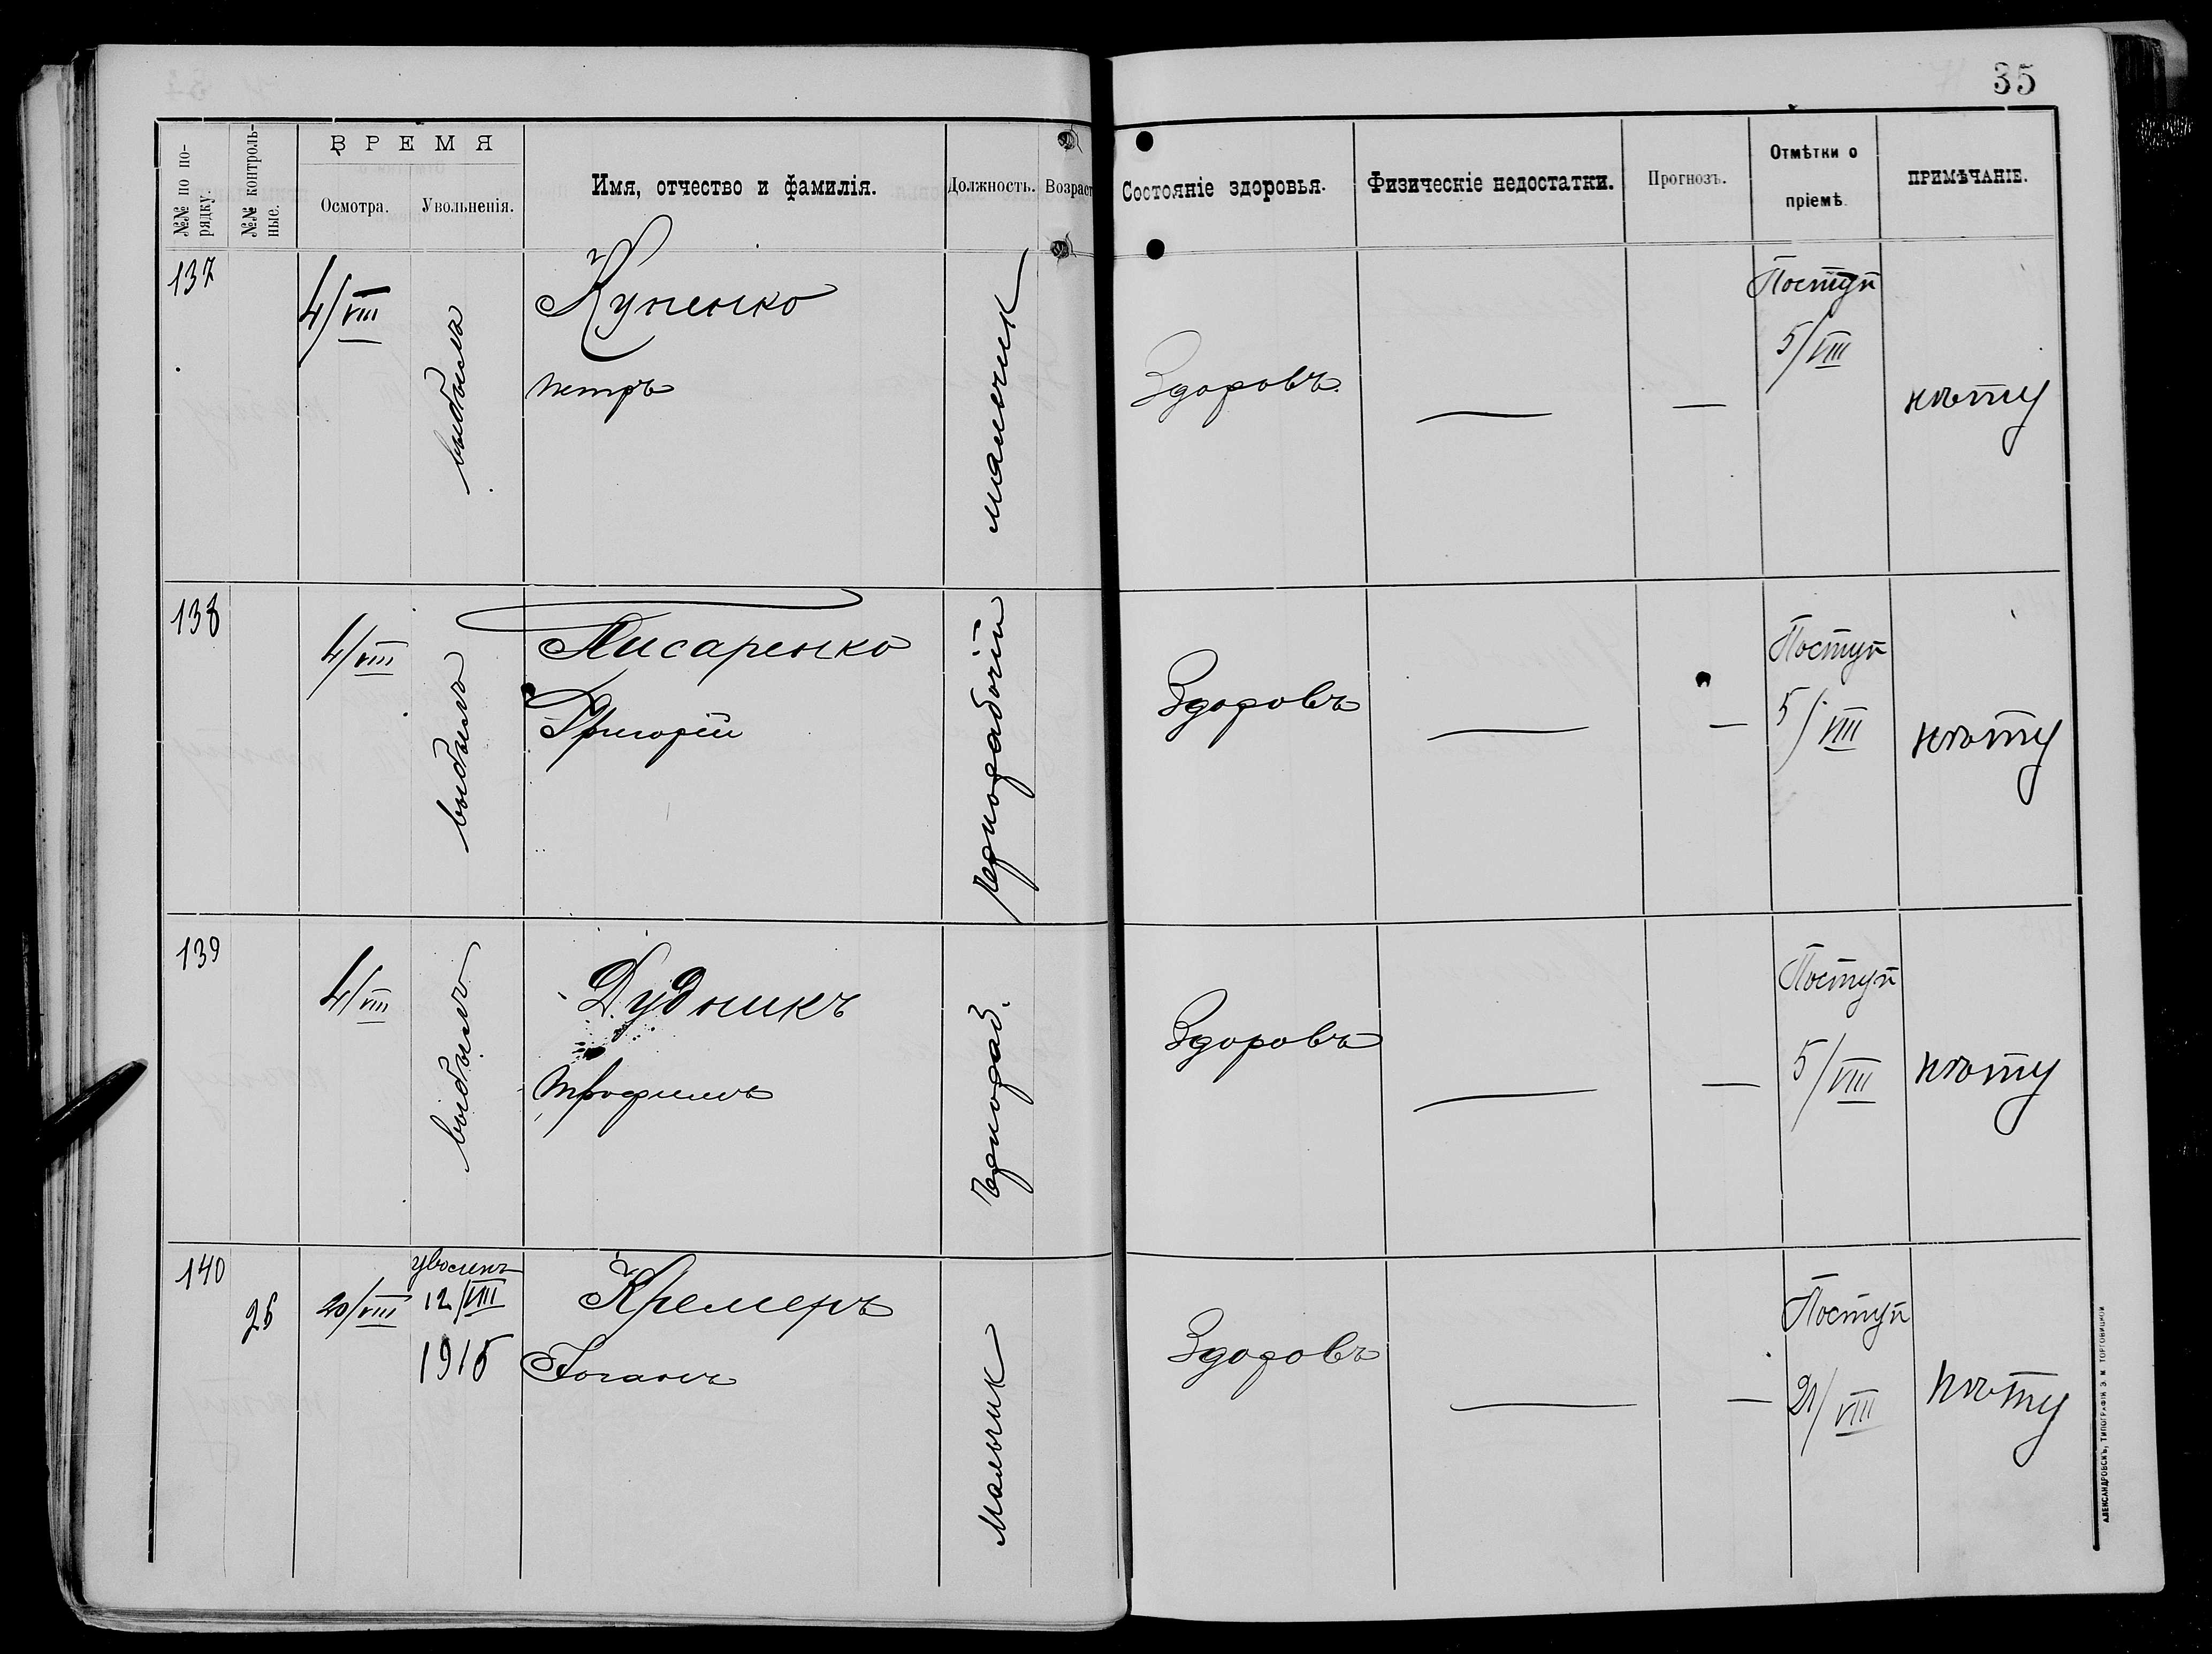 35
№№ по по-
рядку.
№№ контроль-
ные.
ВРЕМЯ
Осмотра.
Увольненія.
Имя, отчество и фамилія.
Должность.
Возраст
Состояніе здоровья.
Физическіе недостатки.
Прогнозъ.
Отмѣтки о
пріемѣ.
ПРИМѢЧАНІЕ.
137
4/VIII
выбылъ
Купенко
петръ
мальчик
Здоровъ.
—
—
Поступ
5/VIII
нѣту
138
4/VIII
выбылъ
Писаренко
Григорій
чернорабочій
Здоровъ
—
—
Поступ
5/VIII
нѣту
139
4/VIII
выбылъ
Дудникъ
трофимъ
чернораб.
Здоровъ
—
—
Поступ
5/VIII
нѣту
140
26
20/VIII
уволенъ
12/VIII
1915
Кремеръ
Іоганъ
Мальчик
Здоровъ
—
—
Поступ
21/VIII
нѣту
АЛЕКСАНДРОВСКЪ, ТИПОГРАФІЯ Э. М. ТОРГОВИЦКОЙ